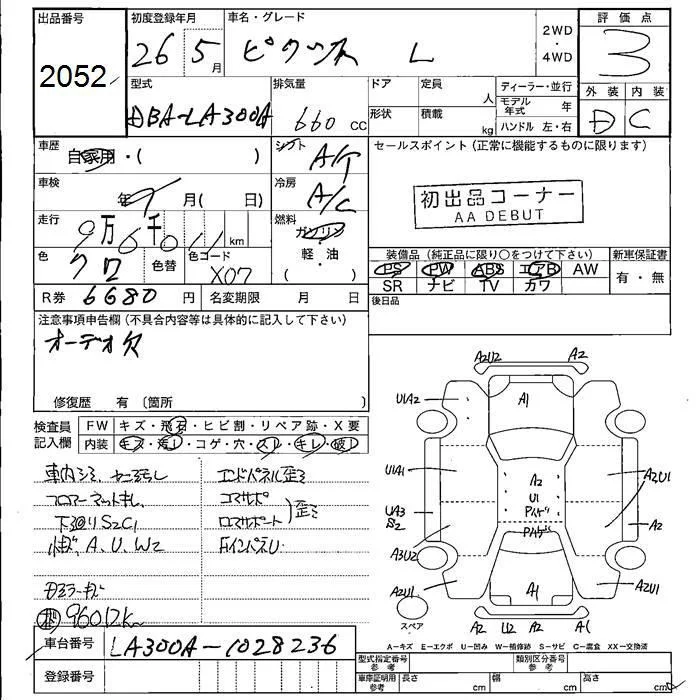 出品番号
2052
初度登録年月
26 5月
車名・グレード
ピクシス L
2WD
・
4WD
評価点
3
外装 内装
D C
型式
DBA-LA300A
排気量
660 cc
ドア
定員
人
形状
積載
kg
ディーラー・並行
モデル年式 年
ハンドル 左・右
車歴
自家用・( )
シフト
A/T
車検
年 9月( 日)
冷房
A/C
走行
9万6千011km
燃料
ガソリン
軽・油
( )
色
クロ
色替
色コード
X07
R券 6680円
名変期限 月 日
セールスポイント(正常に機能するものに限ります)
初出品コーナー
AA DEBUT
装備品(純正品に限り○をつけて下さい)
PS PW ABS エアB AW
SR ナビ TV カワ
新車保証書
有・無
後日品
注意事項申告欄(不具合内容等は具体的に記入して下さい)
オーデオ欠
修復歴 有 〔箇所
検査員記入欄
FW キズ・飛石・ヒビ割・リペア跡・X要
内装 キズ・汚レ・コゲ・穴・スレ・キレ・破レ
車内シミ
エンドパネル歪ミ
フロアーマットキレ
コアサポ
下廻りS2C1
ロアサポート 歪ミ
A、U、W2
FインパネU
96012K
車台番号 LA300A-1028236
登録番号
A2U2 A2
U1A2 A1
U1A1 A2 U1 A2U1
UA3 S2 A2
A3U2
A2U1 A1 A2U1
スペア
A2 U2 A2 A1
A-キズ E-エクボ U-凹み W-補修跡 S-サビ C-腐食 XX-交換済
型式指定番号 参考
類別区分番号 参考
車庫証明用 参考
長さ cm
幅 cm
高さ cm